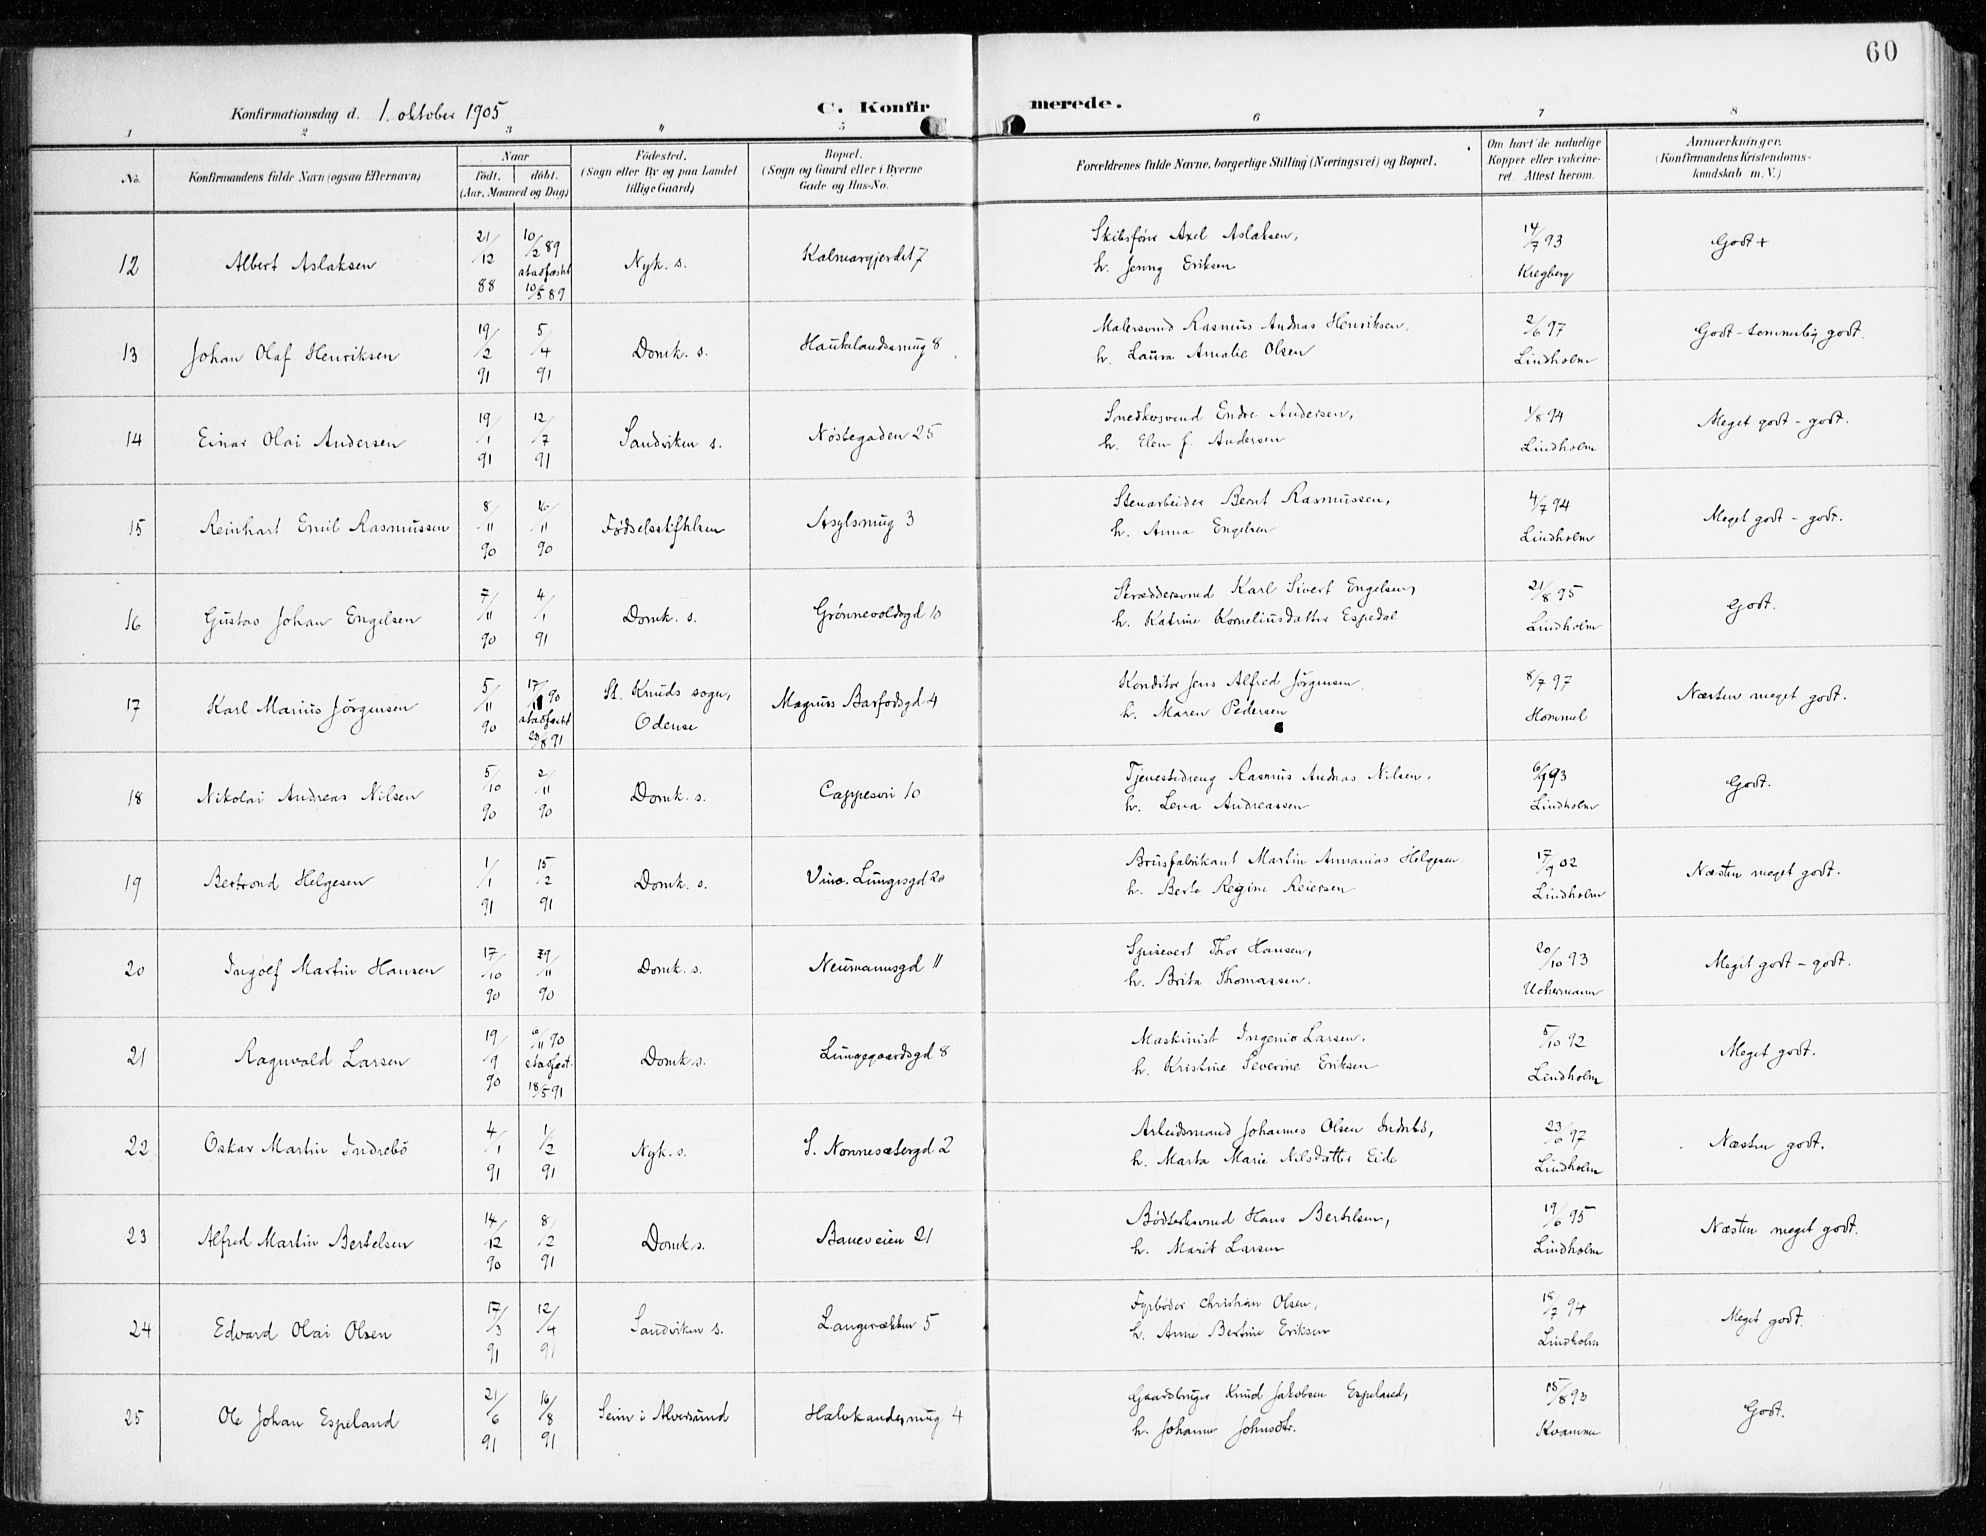 60
Konfirmationsdag d. 1. oktober 1905
C. Konfir merede.
1 2 3 4 5 6 7 8
No.
Konfirmandens fulde Navn (ogsaa Efternavn)
Naar
födt. döbt.
(Aar, Maaned og Dag)
Födested.
(Sogn eller By og paa Landet
tillige Gaard)
Bopæl.
(Sogn og Gaard eller i Byerne
Gade og Hus-No.
Forældrenes fulde Navne, borgerlige Stilling (Næringsvei) og Bopæl.
Om havt de naturlige
Kopper eller vakcine-
ret. Attest herom.
Anmærkninger.
(Konfirmandens Kristendoms-
kundskab m. V.)
12 Albert Aslaksen 21/12 88 10/2 89 stadfæstet 10/5 89 Nyk. s. Kalmargjerdet 7 Skibsfører Axel Aslaksen, 14/7 93 Godt +
h. Jenny Eriksen Kregberg
13 Johan Olaf Henriksen 19/2 91 5/4 91 Domk. s. Haukelandssmug 8 Malersvend Rasmus Andreas Henriksen, 2/6 97 Godt - temmelig godt.
h. Laura Amalie Olsen Lindholm
14 Einar Olai Andersen 19/1 91 12/7 91 Sandviken s. Nöstegaden 25 Snedkersvend Endre Andersen, 1/8 94 Meget godt - godt.
h. Elen f. Andersen Lindholm
15 Reinhart Emil Rasmussen 8/11 90 16/11 90 Fødselsstiftelsen Asylsmug 3 Stenarbeider Bernt Rasmussen, 4/7 94 Meget godt - godt.
h. Anna Engelsen Lindholm
16 Gustav Johan Engelsen 7/11 90 4/1 91 Domk. s. Grönnevoldsgd 10 Skræddersvend Karl Sivert Engelsen, 21/8 95 Godt.
h. Katrine Korneliusdatter Espedal Lindholm
17 Karl Marius Jörgensen 5/11 90 17/11 90 stadfæstet 23/8 91 St. Knuds sogn, Odense Magnus Barfodsgd 4 Konditor Jens Alfred Jörgensen, 8/7 97 Næsten meget godt.
h. Maren Pedersen Hommel
18 Nikolai Andreas Nilsen 5/10 90 2/11 90 Domk. s. Cappesvei 10 Tjenestedreng Rasmus Andreas Nilsen, 6/7 93 Godt.
h. Lena Andreassen Lindholm
19 Bertrond Helgesen 1/1 91 15/2 91 Domk. s. Vinc. Lungesgd 20 Brusfabrikant Martin Annanias Helgesen 17/9 02 Næsten meget godt.
h. Berte Regine Reiersen Lindholm
20 Ingolf Martin Hansen 17/10 90 29/11 90 Domk. s. Neumannsgd 11 Spisevert Thor Hansen, 20/10 93 Meget godt - godt.
h. Brita Thomassen. Uchermann
21 Ragnvald Larsen 19/9 90 6/11 90 stadfæst. 18/5 91 Domk. s. Lungegaardsgd 8 Maskinist Ingenio Larsen, 5/10 92 Meget godt.
h. Kristine Severine Eriksen Lindholm
22 Oskar Martin Indrebö 4/1 91 1/2 91 Nyk. s. S. Nonnesætergd 2 Arbeidsmand Johannes Olsen Indrebö, 23/6 97 Næsten godt.
h. Marta Marie Nilsdatter Eide Lindholm
23 Alfred Martin Bertelsen 14/12 90 8/2 91 Domk s. Baneveien 21 Bödtkersvend Hans Bertelsen, 19/6 95 Næsten meget godt.
h. Marit Larsen Lindholm
24 Edvard Olai Olsen 17/3 91 12/4 91 Sandviken s. Langerækken 5 Fyrböder Christian Olsen, 18/7 94 Meget godt.
h. Anne Bertine Eriksen Lindholm
25 Ole Johan Espeland 21/6 91 16/8 91 Seim i Alversund Halvkandesmug 4 Gaardbruger Knud Jakobsen Espeland, /8 93 Godt.
h. Johanne Johnsdtr. Kvamme